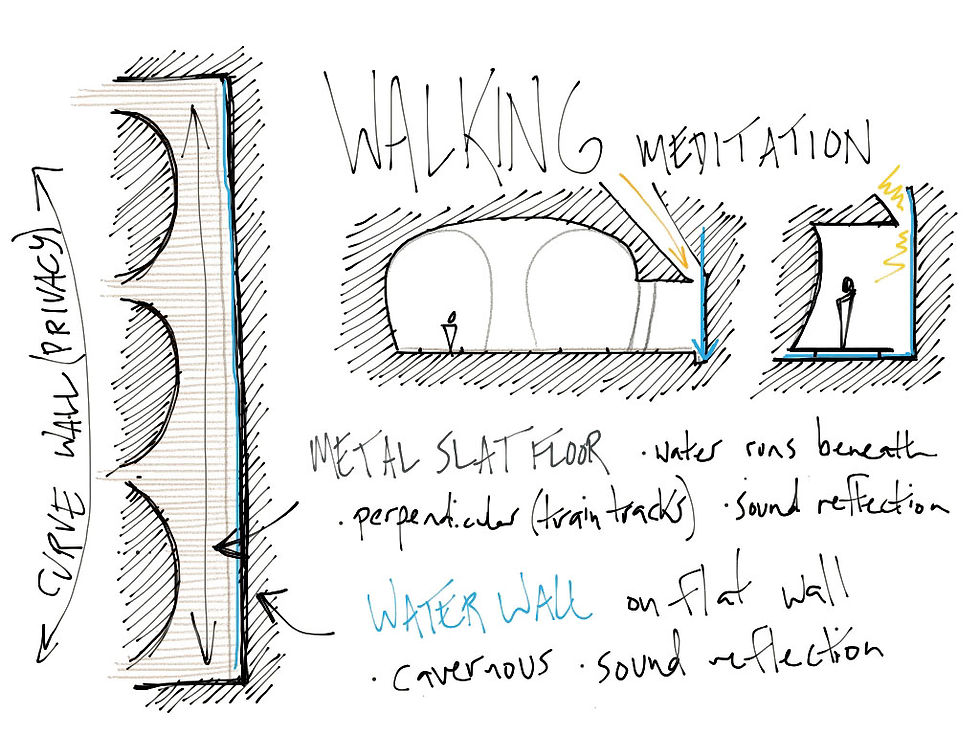 WALKING MEDITATION
CURVE WALL (PRIVACY)
METAL SLAT FLOOR · water runs beneath
· perpendicular (train tracks) · sound reflection
WATER WALL on flat wall
· cavernous · sound reflection